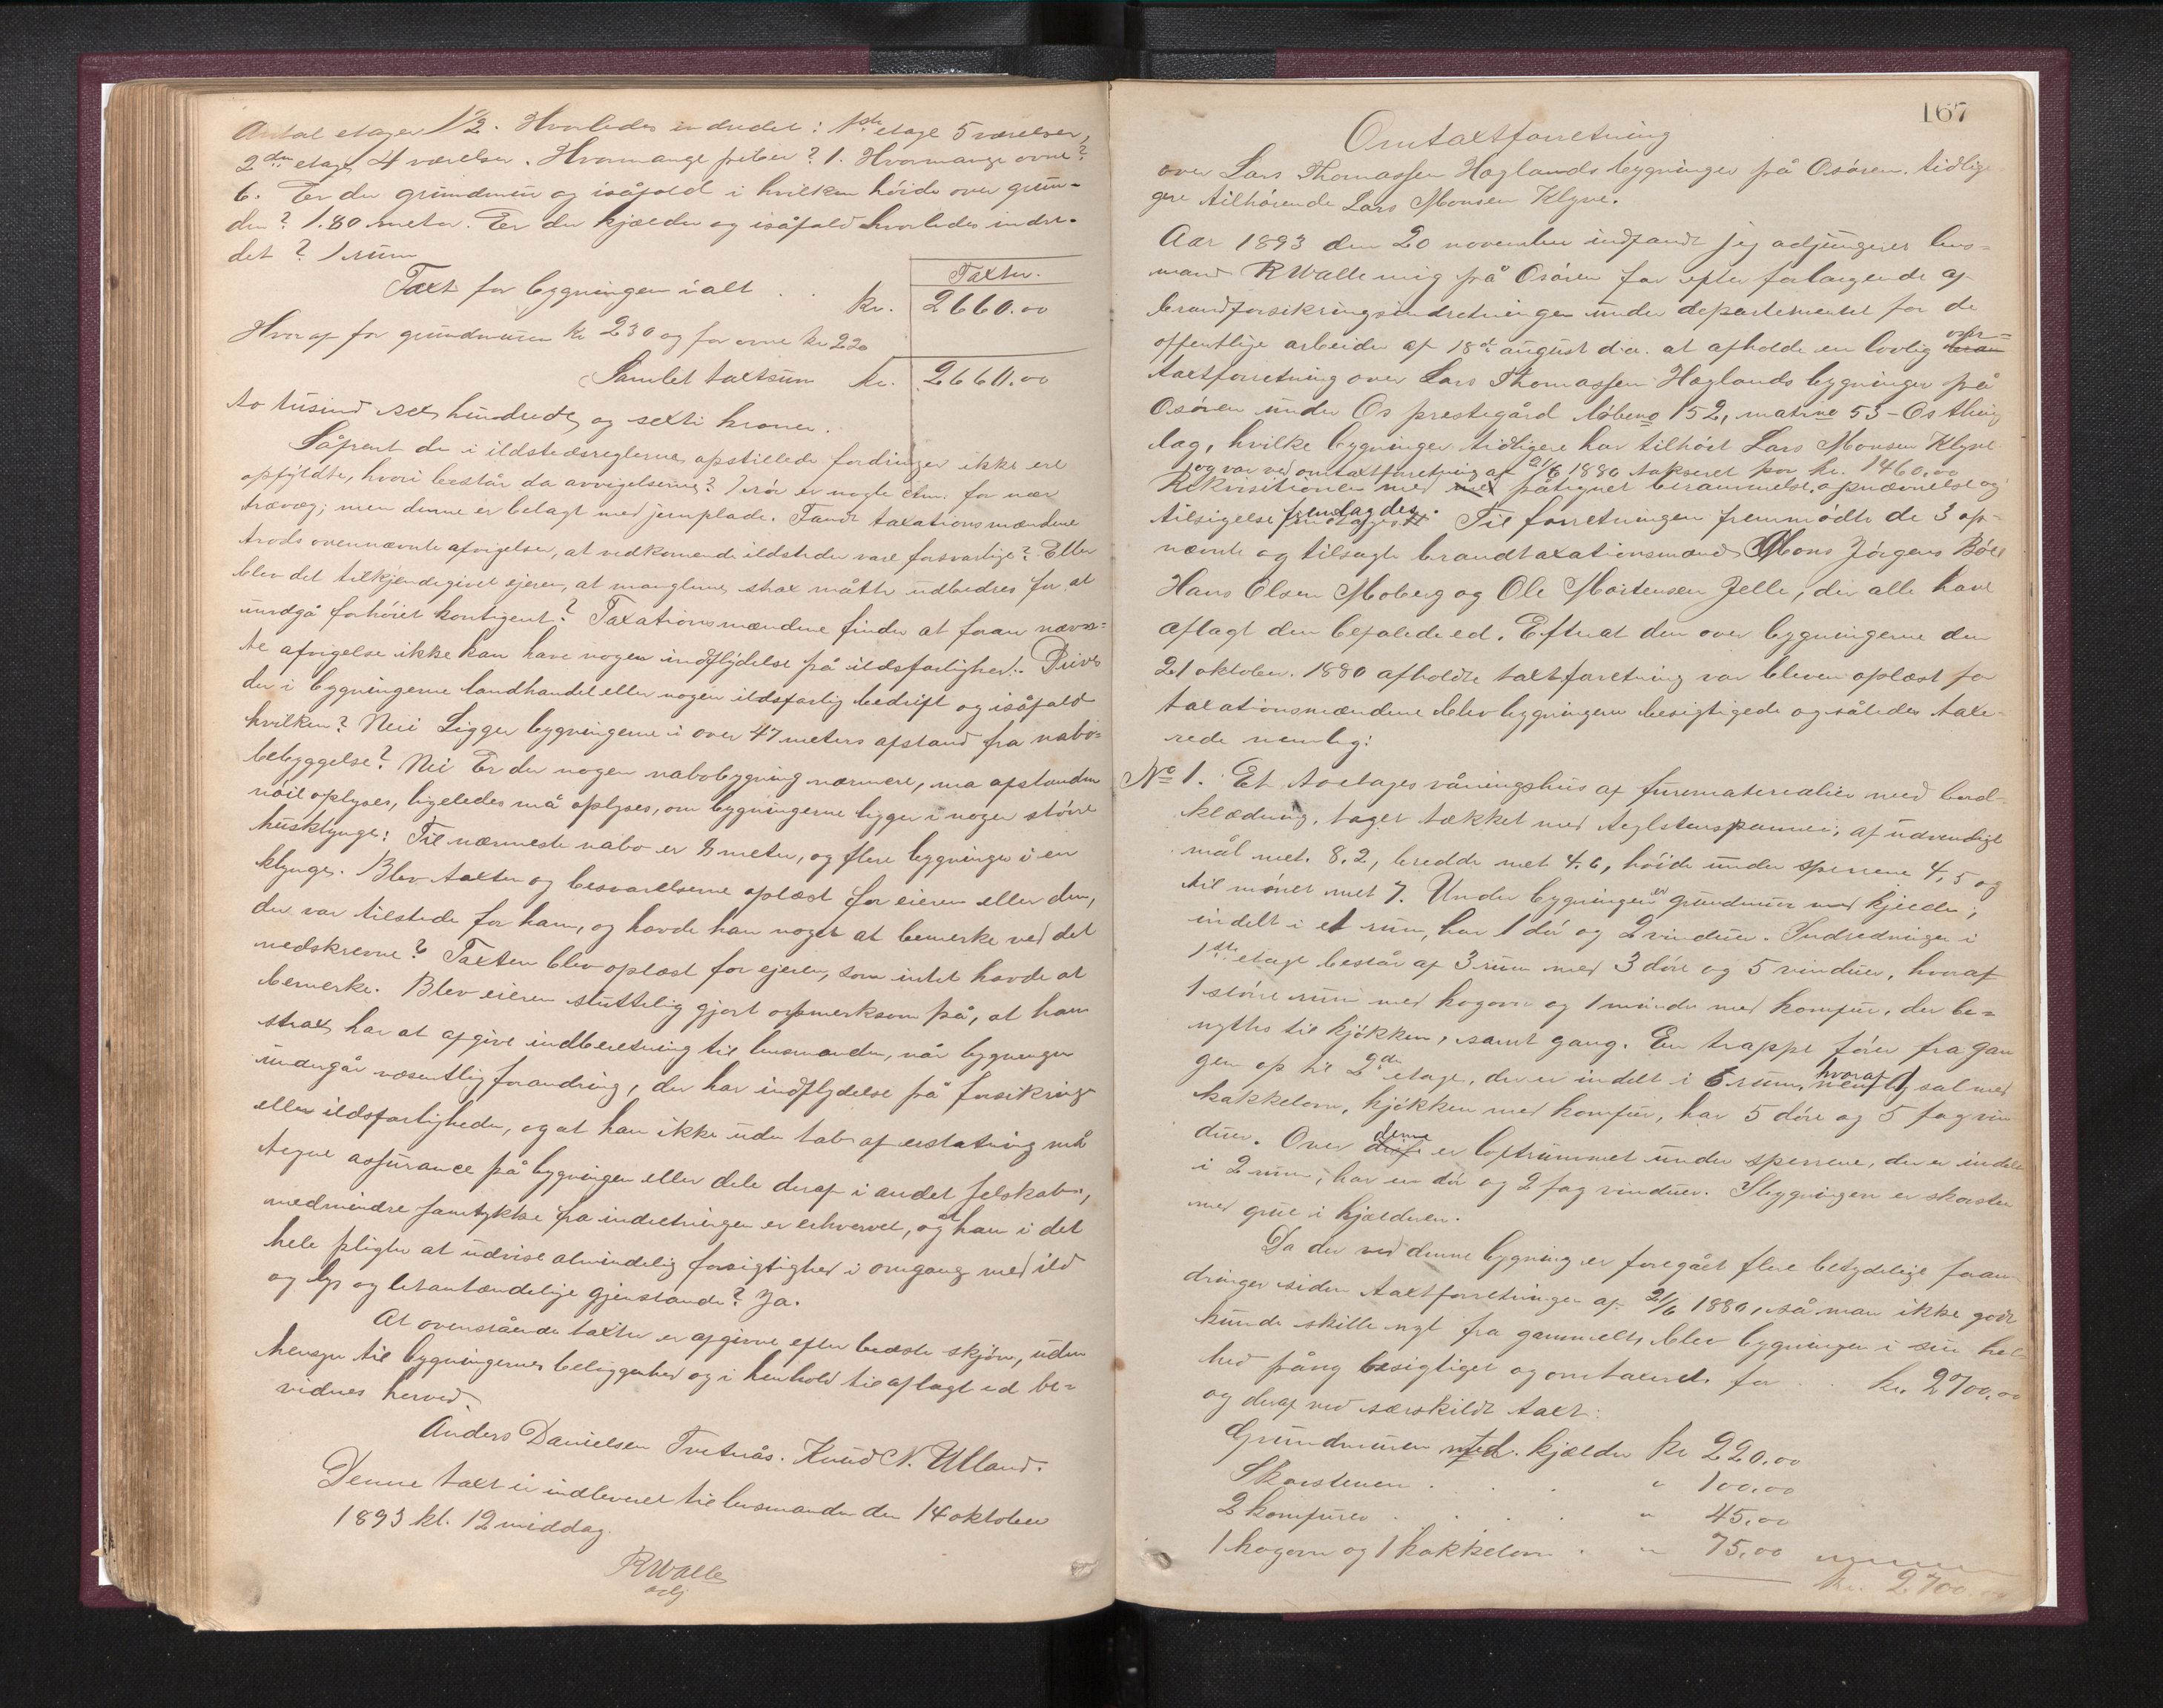 Antal etager 1½. Hvorledes indredet: 1ste etage 5 værelser,
2den etage 4 værelser. Hvormange piber? 1. Hvormange ovne?
6. Er der grundmur og isåfald i hvilken höide over grun-
den? 1.80 meter. Er der kjælder og isåfald hvorledes indre-
det? 1 rum
Taxter.
Taxt for bygningen ialt . . kr. 2660.00
Hvoraf for grundmuren kr 230 og for ovne kr 220
Samlet taxtsum kr. 2660.00
to tusind sex hundrede og sexti kroner.
Såfremt de i ildstedsreglerne opstillede fordringer ikke ere
opfyldte, hvori består da avvigelserne? 1 rör er nogle ctm. for nær
trævæg; men denne er belagt med jernplade. Fandt taxationsmændene
trods ovennævnte afvigelser, at vedkommende ildsteder vare forsvarlige? Eller
blev det tilkjendegivet ejeren, at manglerne strax måtte udbedres for at
undgå forhöiet kontigent? Taxationsmændene finder at foran nævn-
te afvigelse ikke kan have nogen indflydelse på ildsfarlighed. Drives
der i bygningerne landhandel eller nogen ildsfarlig bedrift og isåfald
hvilken? Nei Ligger bygningerne i over 47 meters afstand fra nabo-
bebyggelse? Nei Er der nogen nabobygning nærmere, må afstanden
nöie oplyses, ligeledes må oplyses, om bygningerne ligger i nogen större
husklynge: Til nærmeste nabo er 8 meter, og flere bygninger i en
klynge. Blev taxten og besvarelserne oplæst for eieren eller den,
der var tilstede for ham, og havde han noget at bemerke ved det
nedskrevne? Taxten blev oplæst for ejeren, som intet havde at
bemerke. Blev eieren sluttelig gjort opmerksom på, at han
strax har at afgive indberetning til lensmanden, når bygningen
undergår væsentlig forandring, der har indflydelse på forsikring
eller ildsfarligheden, og at han ikke uden tab af erstatning må
tegne assurance på bygningen eller dele deraf i andet selskab,
medmindre samtykke fra indretningen er erhvervet, og at han i det
hele pligter at udvise almindelig forsigtighed i omgang med ild
og lys og letantændelige gjenstande? Ja.
At ovenstående taxter er afgivne efter bedste skjön, uden
hensyn til bygningernes beliggenhed og i henhold til aflagt ed be-
vidnes herved.
Anders Danielsen Tveterås. Knud N. Ulland.
Denne taxt er indleveret til lensmanden den 14 oktober
1893 kl. 12 middag.
RWalle
adj
167
Omtaxtforretning
over Lars Thomassen Haglands bygninger på Osören, tidlig
gere tilhörende Lars Monsen Klyve.
Aar 1893 den 20 november indfandt jeg adjungeret lens-
mand RWalle mig på Osören for efter forlangende af
brandforsikringsindretningen under departementet for de
offentlige arbeider af 18de august d.a. at afholde en lovlig om-
taxtforretning over Lars Thomassen Haglands bygninger på
Osören under Os prestegård löbeno 152, matrno 53 - Os thing
lag, hvilke bygninger tidligere har tilhört Lars Monsen Klyve
og var ved omtaxtforretning af 21/6 1880 takseret for kr. 1460.00
Rekvisitionen med påtegnet berammelse, opnævnelse og
tilsigelse fremlagdes. Til forretningen fremmödte de 3 op-
nævnte og tilsagte brandtaxationsmænd Mons Jörgens Böe
Hans Olsen Moberg og Ole Mortensen Jelle, der alle have
aflagt den befalede ed. Efterat den over bygningerne den
21 oktober 1880 afholdte taxtforretning var bleven oplæst for
taxationsmændene blev bygningerne besigtigede og således taxe-
rede nemlig:
No 1. Et toetages våningshus af furumaterialier med bord-
klædning, taget tækket med teglstenspanner, af udvendigt
mål met. 8,2, bredde met 4.6, höide under sperrene 4,5 og
til mönet met 7. Under bygningen er grundmur med kjelder,
indelt i et rum, har 1 dör og 2 vinduer. Indredningen i
1ste etage består af 3 rum med 3 döre og 5 vinduer, hvoraf
1 större rum med kogovn og 1 mindre med komfur, der be-
nyttes til kjökken, samt gang. En trappe förer fra gan
gen op til 2den etage, der er indelt i 5 rum, hvoraf 1 sal med
kakkelovn, kjökken med komfur, har 5 döre og 5 fag vin
duer. Over denne er loftrummet under sperrene, der er indelt
i 2 rum, har en dör og 2 fag vinduer. I bygningen er skorsten
med grue i kjælderen.
Da der ved denne bygning er foregået flere betydelige foran
dringer siden taxtforretningen af 21/6 1880, så man ikke godt
kunde skille nyt fra gammelt, blev bygningen i sin hel-
hed påny besigtiget og omtaxeret for . . kr. 2700,00
og deraf ved særskildt taxt:
Grundmuren med kjælder kr 220.00
Skorstenen . . . " 100.00
2 komfurer . . . . " 45.00
1 kogovn og 1 kakkelovn . " 75.00
kr. 2700.00